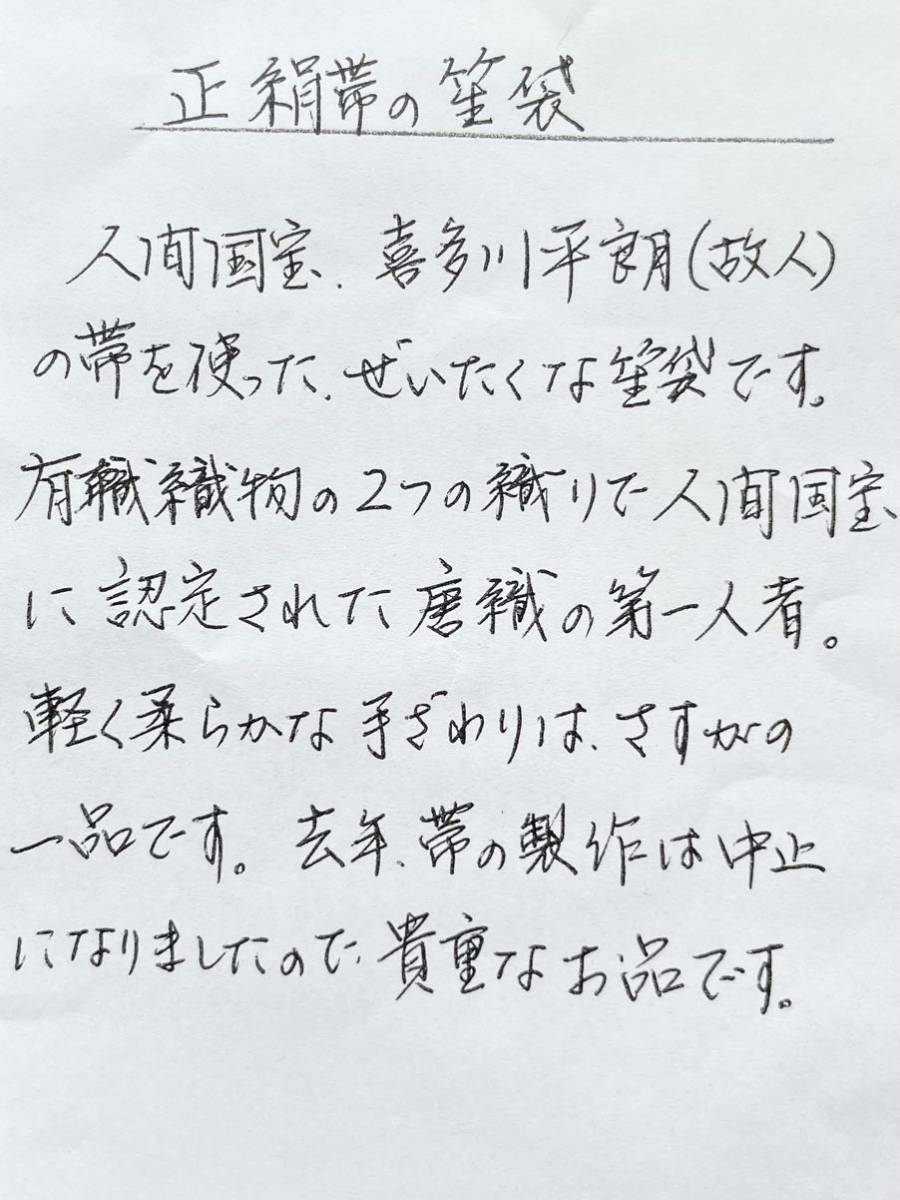 正絹帯の笙袋
人間国宝、喜多川平朗(故人)
の帯を使った、ぜいたくな笙袋です。
有職織物の2つの織りで人間国宝
に認定された唐織の第一人者。
軽く柔らかな手ざわりは、さすがの
一品です。去年、帯の製作は中止
になりましたので、貴重なお品です。